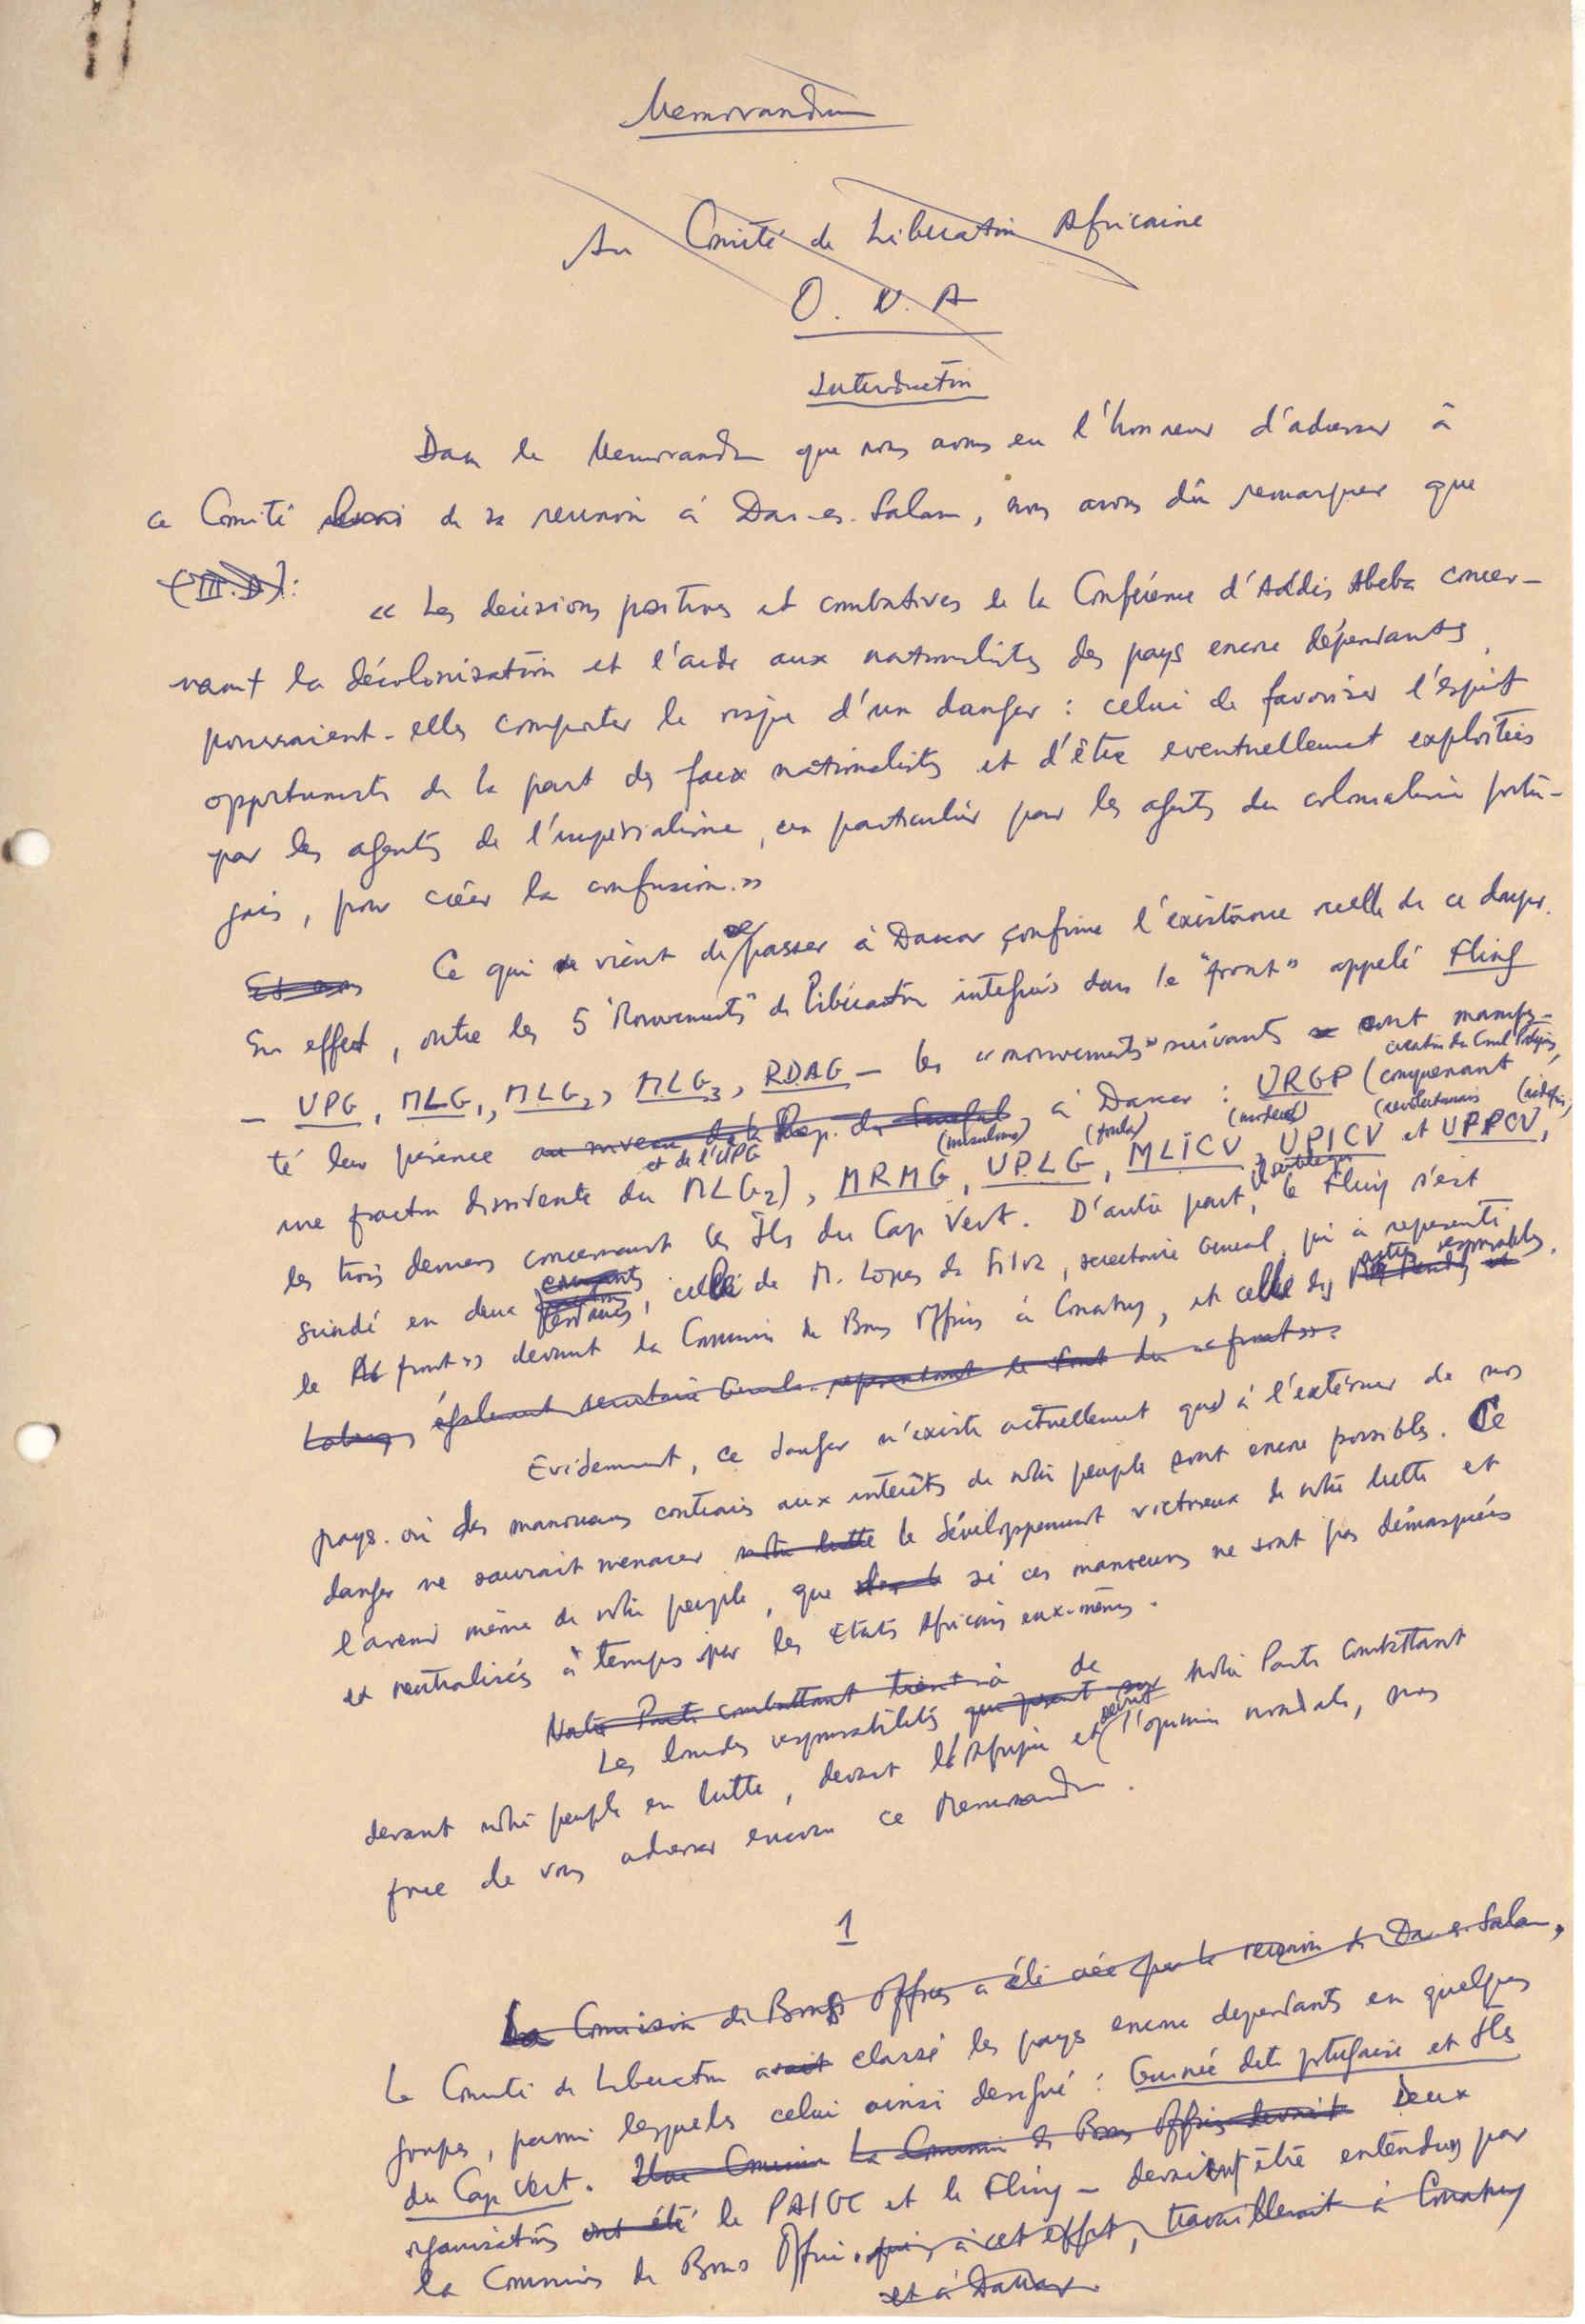 Memorandum
Au Comité de Libération Africaine
O. U. A
Introduction
Dans le Memorandum que nous avons eu l'honneur d'adresser à
ce Comité lors de sa reunion à Dar-es-Salam, nous avons dû remarquer que
(III.D):
« Les decisions positives et combatives de la Conférence d'Addis Abeba concer-
nant la décolonisation et l'aide aux nationalistes des pays encore dépendants,
pourraient-elles comporter le risque d'un danger : celui de favoriser l'esprit
opportuniste de la part des faux nationalistes et d'être eventuellement exploitées
par les agents de l'impérialisme, en particulier par les agents du colonialisme portu-
gais, pour créer la confusion. »
Ce qui vient de se passer à Dakar confirme l'existence réelle de ce danger.
En effet, outre les 5 "Mouvements" de Libération integrés dans le "front" appelé Fling
— UPG, MLG1, MLG2, MLG3, RDAG — les "mouvements" suivants ont manifes-
té leur présence au niveau de la Rep. du Senegal, à Dakar : URGP (comprenant
une fraction dissidente du MLG2 et de l'UPG), MRMG (musulmans), UPLG (foulas), MLICV (moderés), UPICV (revolutionnaires) et UPPCV,
les trois derniers concernant les Iles du Cap Vert. D'autre part, il semble que le Fling s'est
scindé en deux tendances, celle de M. Lopes da Silva, secretaire General, qui a representé
le "front" devant la Commission de Bons Offices à Conakry, et celle des autres responsables.
Labery, également secretaire General. representant le Front du « front ».
Evidemment, ce danger n'existe actuellement que à l'extérieur de nos
pays. où des manoeuvres contraires aux interêts de notre peuple sont encore possibles. Ce
danger ne saurait menacer notre lutte le développement victorieux de notre lutte et
l'avenir même de notre peuple, que si ces manoeuvres ne sont pas démasquées
et neutralisées à temps par les Etats Africains eux-mêmes.
Notre Parti combattant tient à
Les lourdes responsabilités qui pesent sur de notre Parti Combattant
devant notre peuple en lutte, devant l'Afrique et devant l'opinion mondiale, nous
force de vous adresser encore ce Memorandum.
1
La Commission de Bons Offices a été créée par la reunion de Dar-es-Salam,
Le Comité de Liberation avait classé les pays encore dependants en quelques
groupes, parmi lesquels celui ainsi designé : Guinée dite portugaise et Iles
du Cap Vert. Une Commission La Commission de Bons Offices devrait Deux
organisations ont été le PAIGC et le Fling — devraient être entendues par
la Commission de Bons Offices, qui, à cet effet, travaillerait à Conakry
et à Dakar.